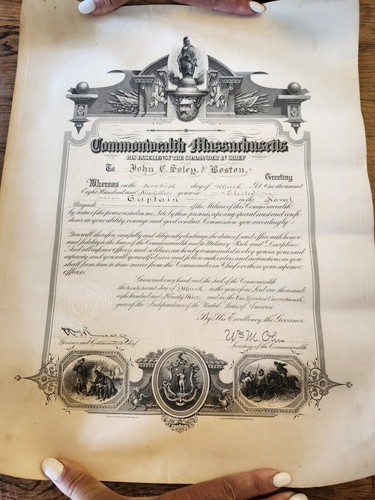 Commonwealth Massachusetts
HIS EXCELLENCY THE COMMANDER IN CHIEF
To John C. Soley, of Boston, Greeting
Whereas on the day of March A.D. one thousand
Eight Hundred and Ninety three you were Elected
Captain in the Naval
Brigade of the Militia of this Commonwealth
By virtue of the power vested in me I do by these presents, reposing special trust and confi-
dence in your ability, courage and good conduct, Commission you accordingly.
You will therefore carefully and diligently discharge the duties of said office with honor
and fidelity to the laws of this Commonwealth and to Military Rule and Discipline.
And all inferior officers and soldiers are hereby commanded to obey you in your said
capacity and you will yourself observe and follow such orders and instructions as you
shall from time to time receive from the Commander in Chief or others your superior
officers.
Given under my hand and the seal of the Commonwealth
the day of March in the year of our Lord one thousand
eight hundred and Ninety three, and in the One hundred and seventeenth
year of the Independence of the United States of America.
By His Excellency the Governor
Wm M. Olin
Governor and Commander in Chief
Secretary of the Commonwealth